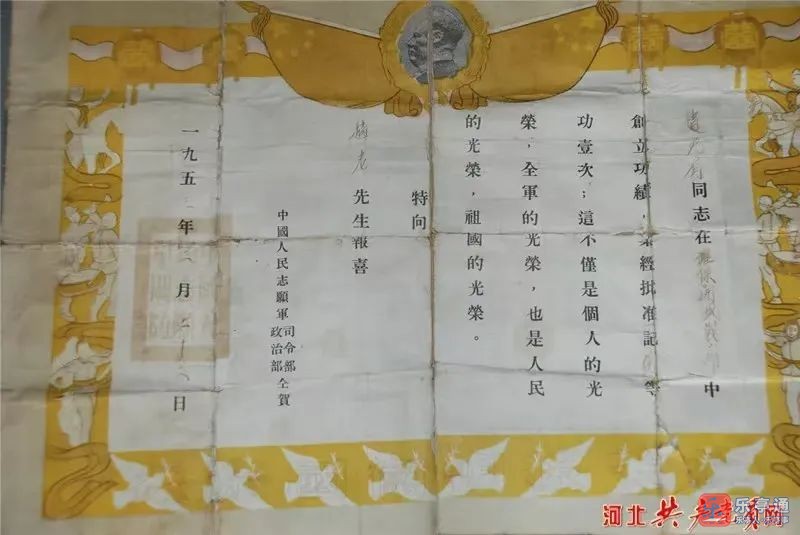 同志在 中
創立功績，業經批准記 等
功壹次；這不僅是個人的光
榮，全軍的光榮，也是人民
的光榮，祖國的光榮。
特向
老 先生報喜
中國人民志願軍 司令部 政治部 仝賀
一九五 年 月 日
河北共产党员网
乐享通